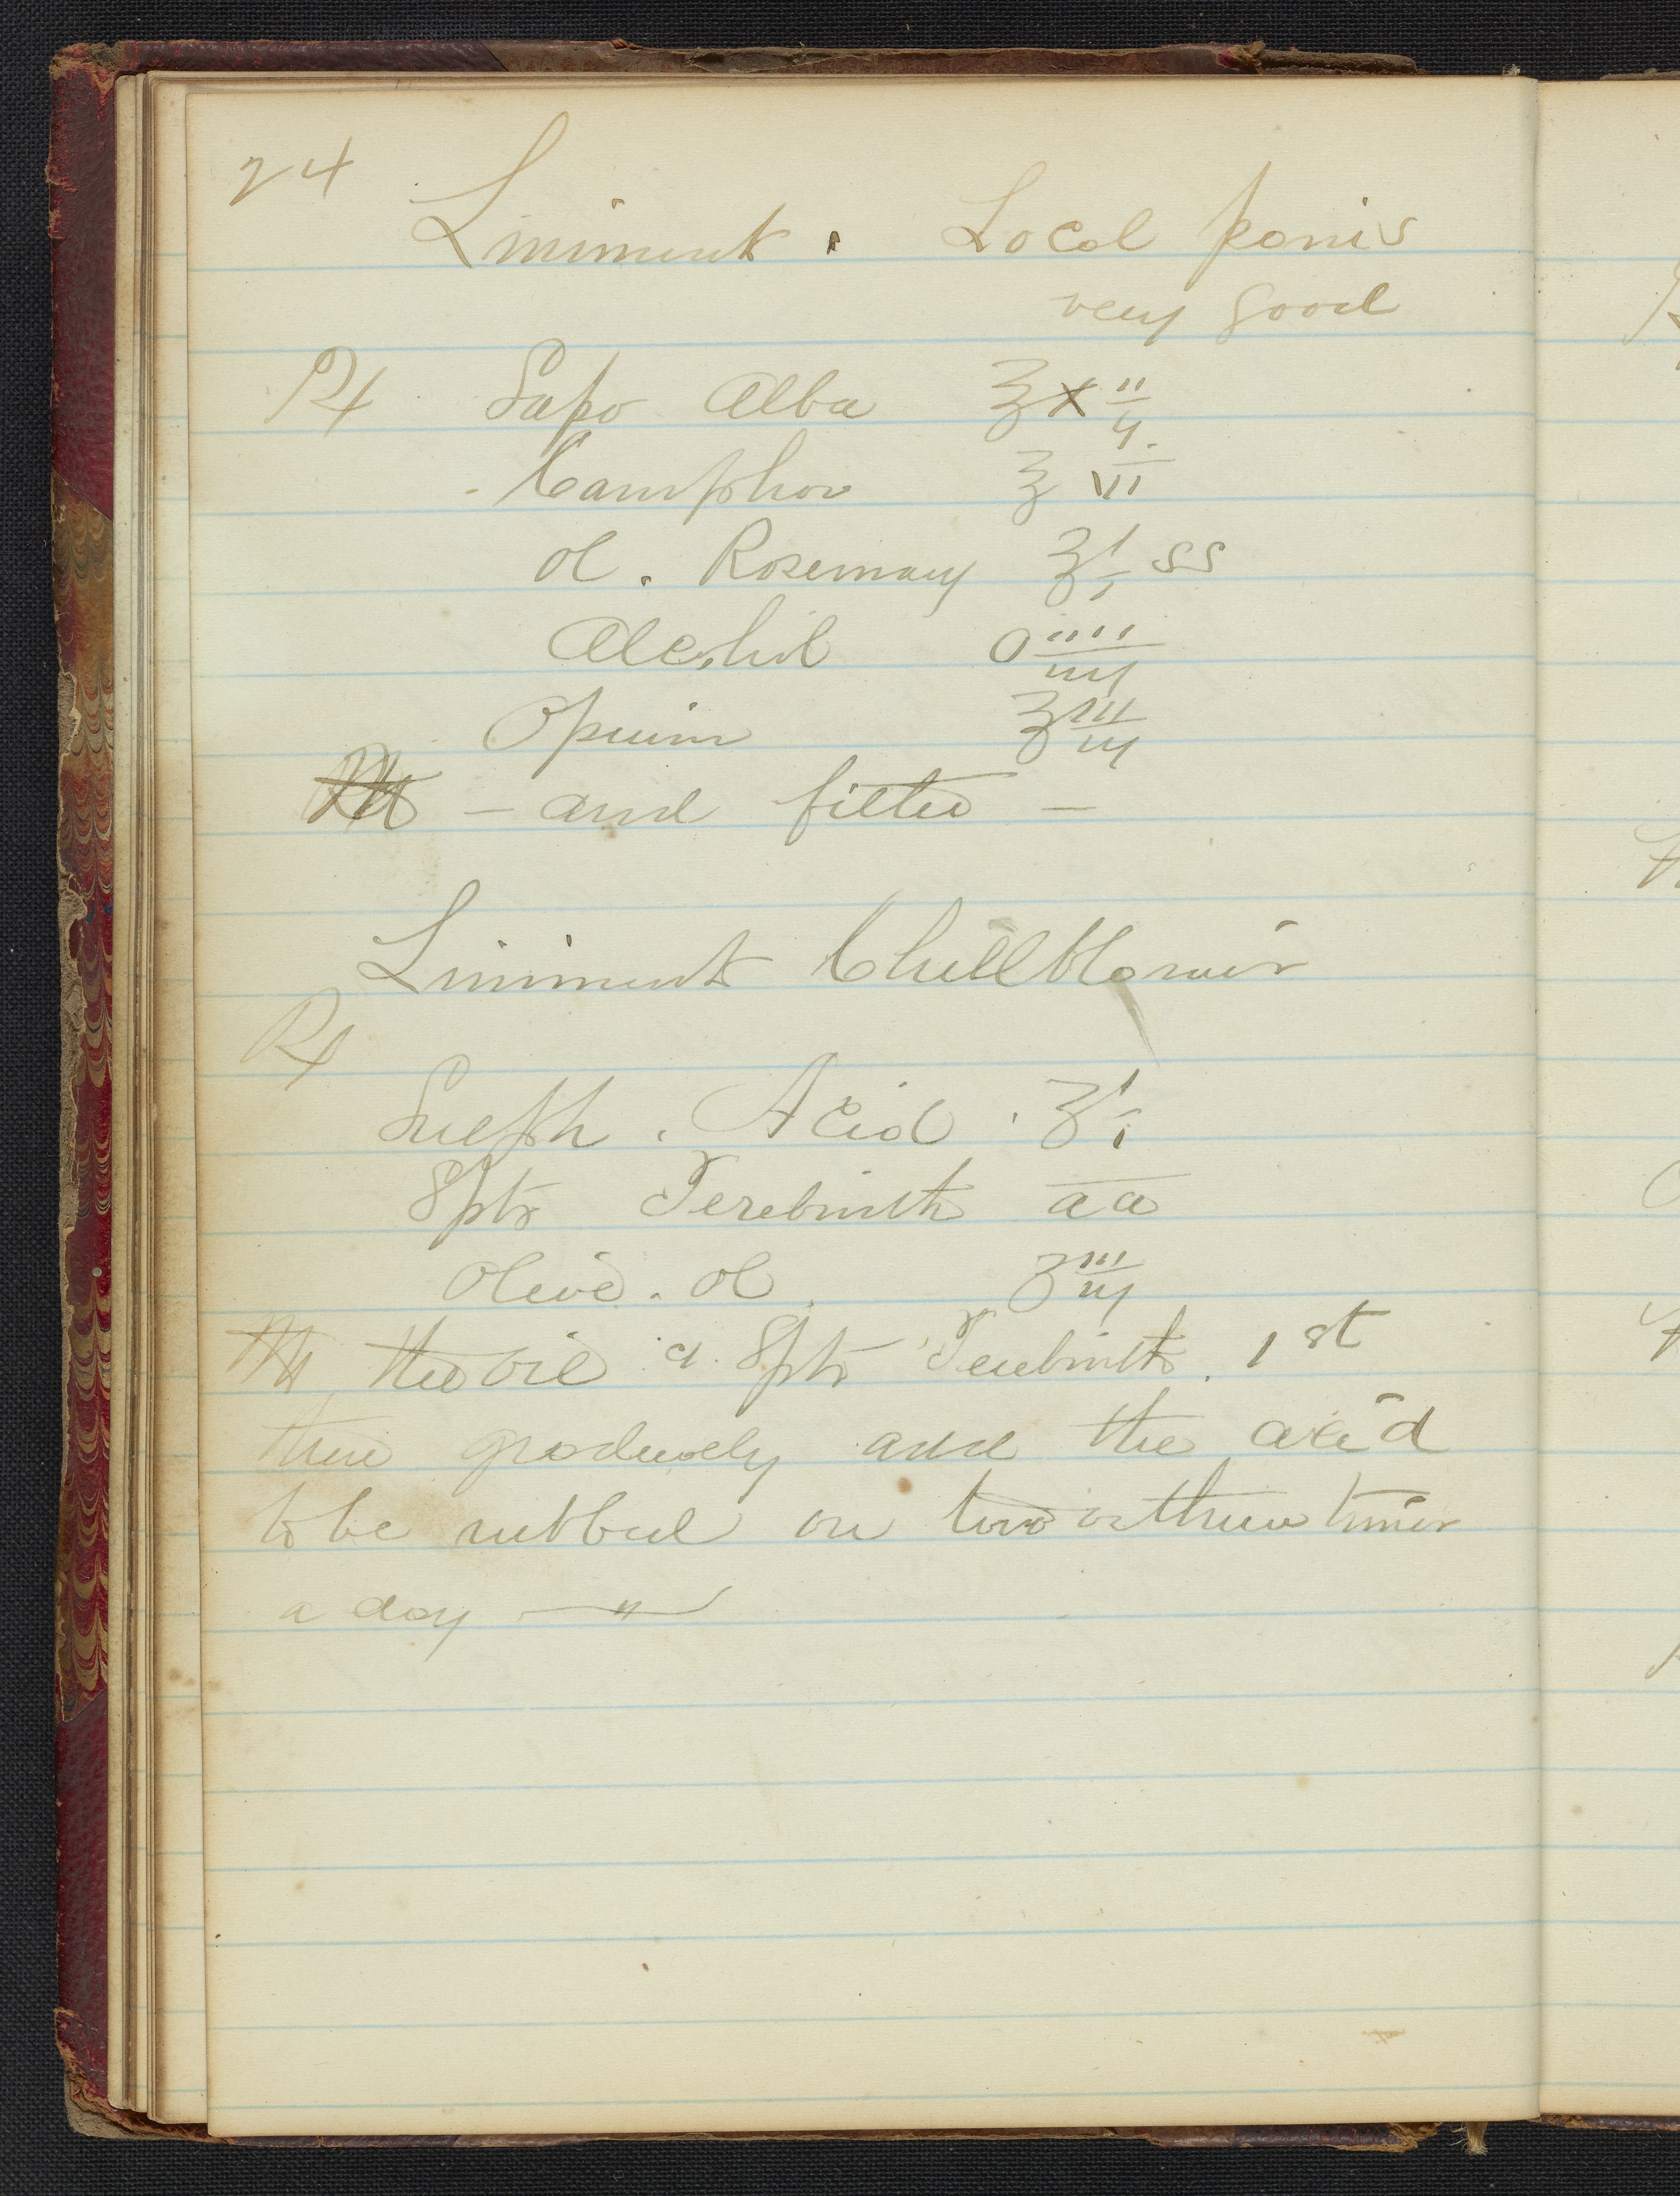 24
Liniment . Local panis
very good
℞ Sapo Alba ℥ xij
Camphor ℥ vi
ol . Rosemary ℥i ss
Alcohil O iiij
Opium ℥iij
M — and filter —
Liniment Chillblains
℞
Sulph . Acid . ℥i
Spts Terebinth aa
Olive . ol ℥iij
M the oil & Spts Terebinth . 1st
then gradually add the acid
to be rubbed on two or three times
a day — " —